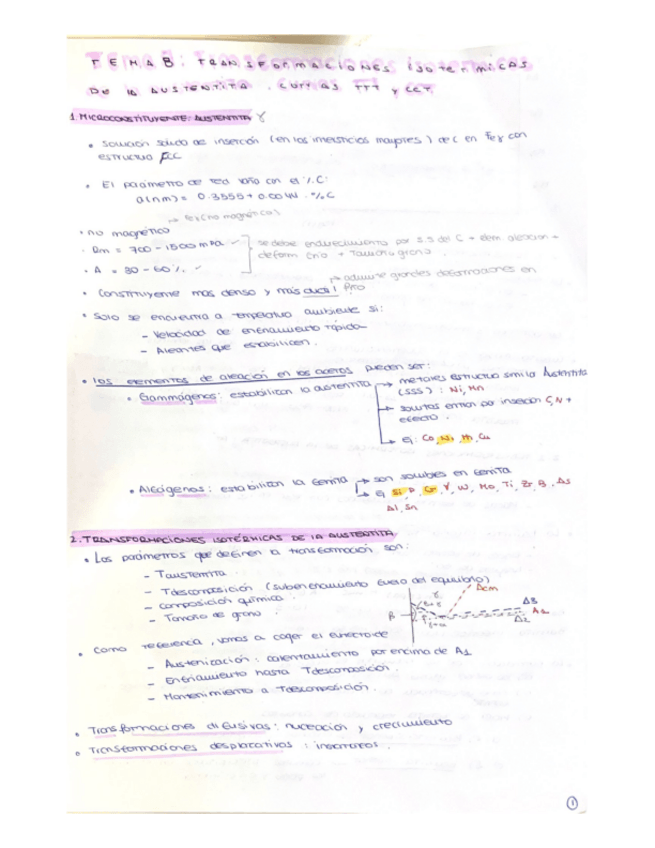 TEMA 8: TRANSFORMACIONES ISOTÉRMICAS
DE LA AUSTENITA. CURVAS TTT y CCT.
1. MICROCONSTITUYENTE: AUSTENITA γ
• Solución sólida de inserción (en los intersticios mayores) de C en Feγ con
estructura FCC
• El parámetro de red varía con el % C:
a(nm) = 0.3555 + 0.0044 · % C
→ Feγ (no magnético)
• no magnético
• Rm = 700 - 1500 MPa ✓
se debe endurecimiento por s.s del C + elem aleación +
deform (fría) + Tamaño grano.
• A = 30 - 60 % ✓
→ admite grandes deformaciones en
frío
• Constituyente más denso y más dúctil
• Solo se encuentra a temperatura ambiente si:
- Velocidad de enfriamiento rápida
- Aleantes que estabilicen.
• Los elementos de aleación en los aceros pueden ser:
• Gammágenos: estabilizan la austenita
→ metales estructura similar Austenita
(SSS): Ni, Mn
→ solutos entran por inserción C, N +
efecto.
→ Ej: Co, Ni, Mn, Cu
• Alfágenos: estabilizan la ferrita
→ son solubles en ferrita
→ Ej Si, P, Cr, V, W, Mo, Ti, Zr, B, As
Al, Sn
2. TRANSFORMACIONES ISOTÉRMICAS DE LA AUSTENITA
• Los parámetros que definen la transformación son:
- Taustenita.
- Tdescomposición (subenfriamiento fuera del equilibrio)
- composición química.
- Tamaño de grano.
Acm
γ
A3
A1
A2
• Como referencia, vamos a coger el eutectoide
- Austenización: calentamiento por encima de A1
- Enfriamiento hasta Tdescomposición.
- Mantenimiento a Tdescomposición.
• Transformaciones difusivas: nucleación y crecimiento
• Transformaciones desplacativas:
1